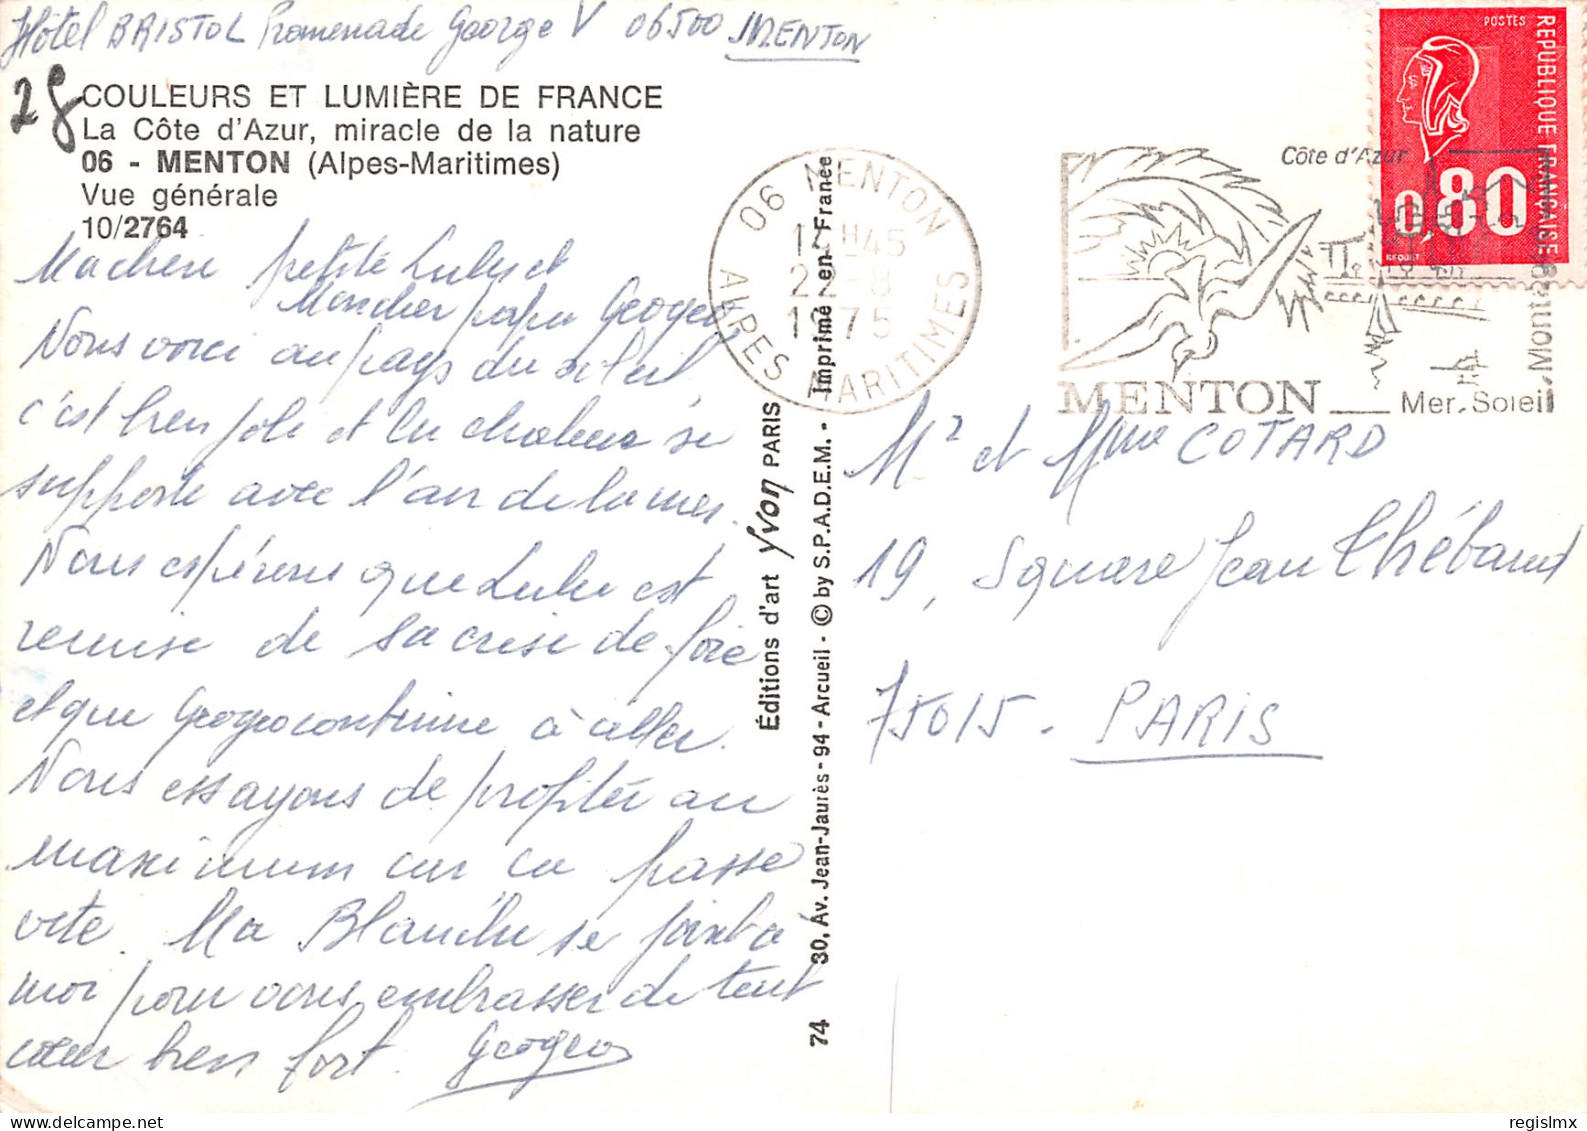 Hôtel BRISTOL Promenade George V 06500 MENTON
28
COULEURS ET LUMIÈRE DE FRANCE
La Côte d'Azur, miracle de la nature
06 - MENTON (Alpes-Maritimes)
Vue générale
10/2764
Ma chère petite Lulu et
Mon cher papa Geogeo
Nous voici au pays du soleil
c'est bien joli et la chaleur se
supporte avec l'air de la mer.
Nous espérons que Lulu est
remise de sa crise de foie
et que Geogeo continue à aller.
Nous essayons de profiter au
maximum car ca passe
vite. Ma Blanche se joint à
moi pour vous embrasser de tout
cœur bien fort. Geogeo
Éditions d'art Yvon PARIS
30, Av. Jean-Jaurès - 94 - Arcueil - © by S.P.A.D.E.M. - Imprimé en France
74
06 MENTON
14H45
22-8
1975
ALPES MARITIMES
Côte d'Azur
MENTON
Mer, Soleil, Montagne
POSTES
REPUBLIQUE FRANÇAISE
0,80
BEQUET
Mr et Mme COTARD
19, Square Jean Thébaud
75015 - PARIS
regislmx